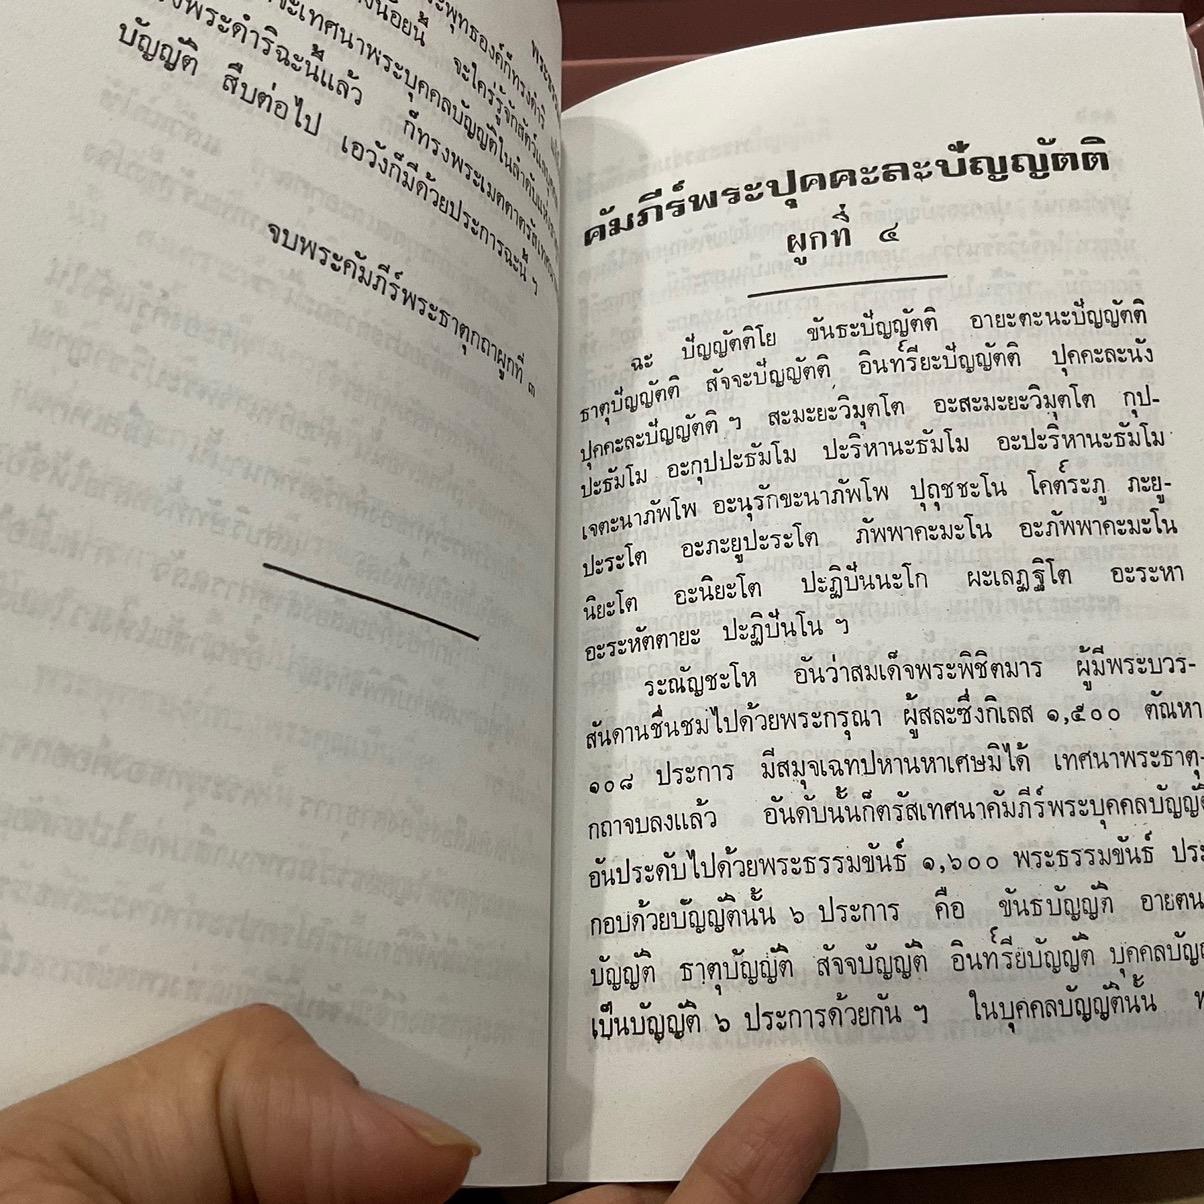 พระพุทธองค์ก็ทรงดำริ
น้อยนี้ จะใคร่รู้จักสัตว์แล
จะเทศนาพระบุคคลบัญญัติในลำดับ
พระดำริฉะนี้แล้ว ก็ทรงพระเมตตาตรัสเทศนา
บัญญัติ สืบต่อไป เอวังก็มีด้วยประการฉะนี้ ฯ
จบพระคัมภีร์พระธาตุกถาผูกที่ ๓
คัมภีร์พระปุคคะละปัญญัตติ
ผูกที่ ๔
ฉะ ปัญญัตติโย ขันธะปัญญัตติ อายะตะนะปัญญัตติ
ธาตุปัญญัตติ สัจจะปัญญัตติ อินท์รียะปัญญัตติ ปุคคะละนัง
ปุคคะละปัญญัตติ ฯ สะมะยะวิมุตโต อะสะมะยะวิมุตโต กุป-
ปะธัมโม อะกุปปะธัมโม ปะริหานะธัมโม อะปะริหานะธัมโม
เจตะนาภัพโพ อะนุรักขะนาภัพโพ ปุถุชชะโน โคต์ระภู ภะยู-
ปะระโต อะภะยูปะระโต ภัพพาคะมะโน อะภัพพาคะมะโน
นิยะโต อะนิยะโต ปะฏิปันนะโก ผะเลฏฐิโต อะระหา
อะระหัตตายะ ปะฏิปันโน ฯ
ระณัญชะโห อันว่าสมเด็จพระพิชิตมาร ผู้มีพระบวร-
สันดานชื่นชมไปด้วยพระกรุณา ผู้สละซึ่งกิเลส ๑,๕๐๐ ตัณหา
๑๐๘ ประการ มีสมุจเฉทปหานหาเศษมิได้ เทศนาพระธาตุ-
กถาจบลงแล้ว อันดับนั้นก็ตรัสเทศนาคัมภีร์พระบุคคลบัญญัติ
อันประดับไปด้วยพระธรรมขันธ์ ๑,๖๐๐ พระธรรมขันธ์ ประ
กอบด้วยบัญญัตินั้น ๖ ประการ คือ ขันธบัญญัติ อายตน
บัญญัติ ธาตุบัญญัติ สัจจบัญญัติ อินท์รียบัญญัติ บุคคลบัญญ
เป็นบัญญัติ ๖ ประการด้วยกัน ฯ ในบุคคลบัญญัตินั้น